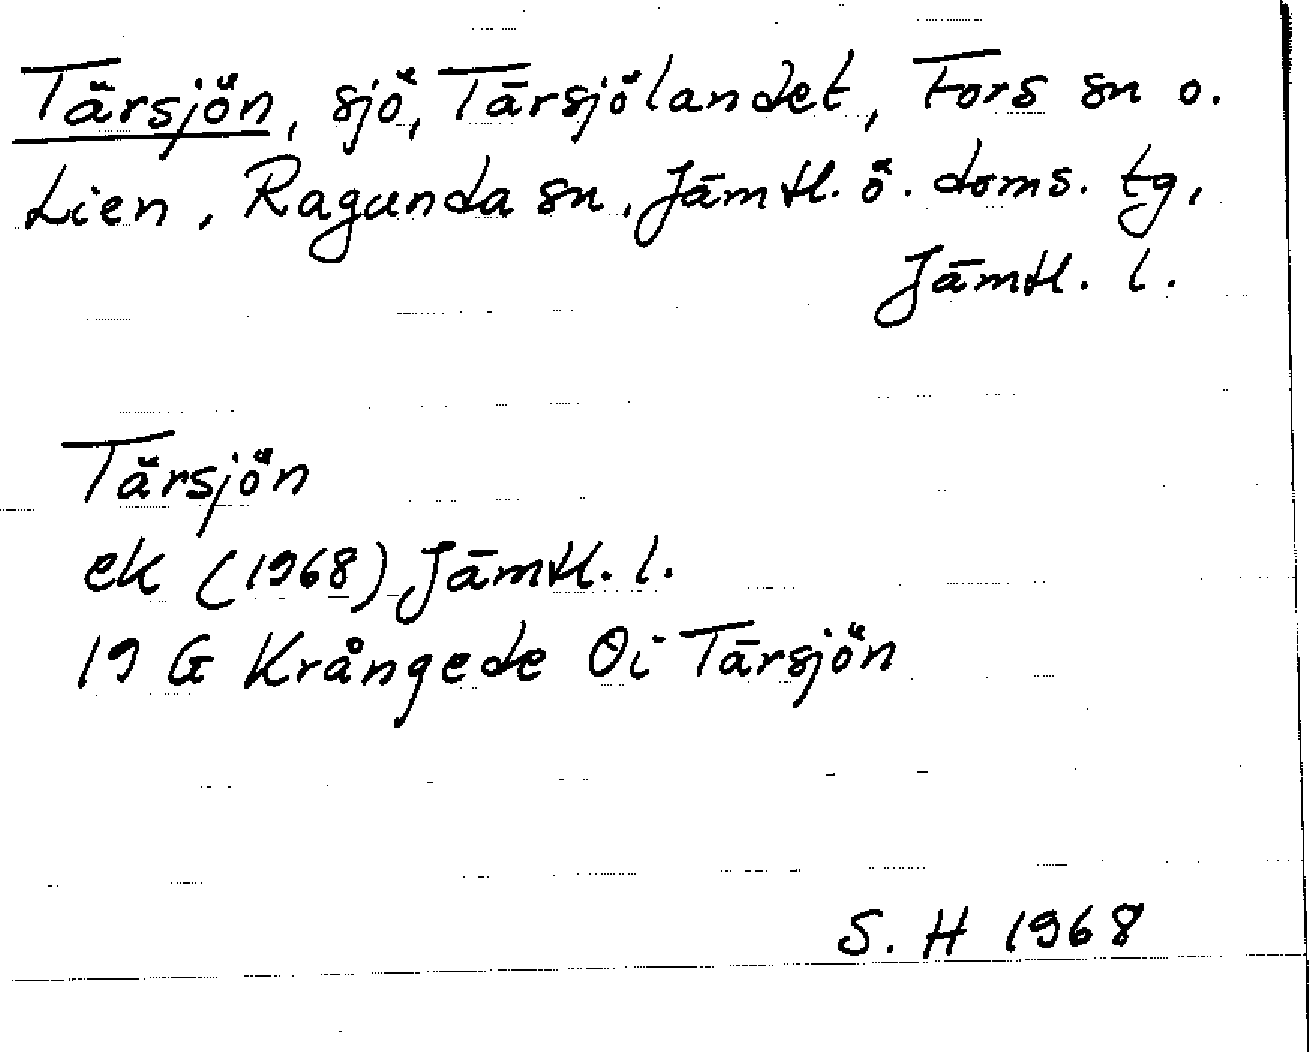 Tärsjön, sjö, Tärsjölandet, Fors sn o.
Lien, Ragunda sn, Jämtl. ö. doms. tg,
Jämtl. l.
Tärsjön
ek (1968) Jämtl. l.
19 G Krångede Öi Tärsjön
S. H 1968